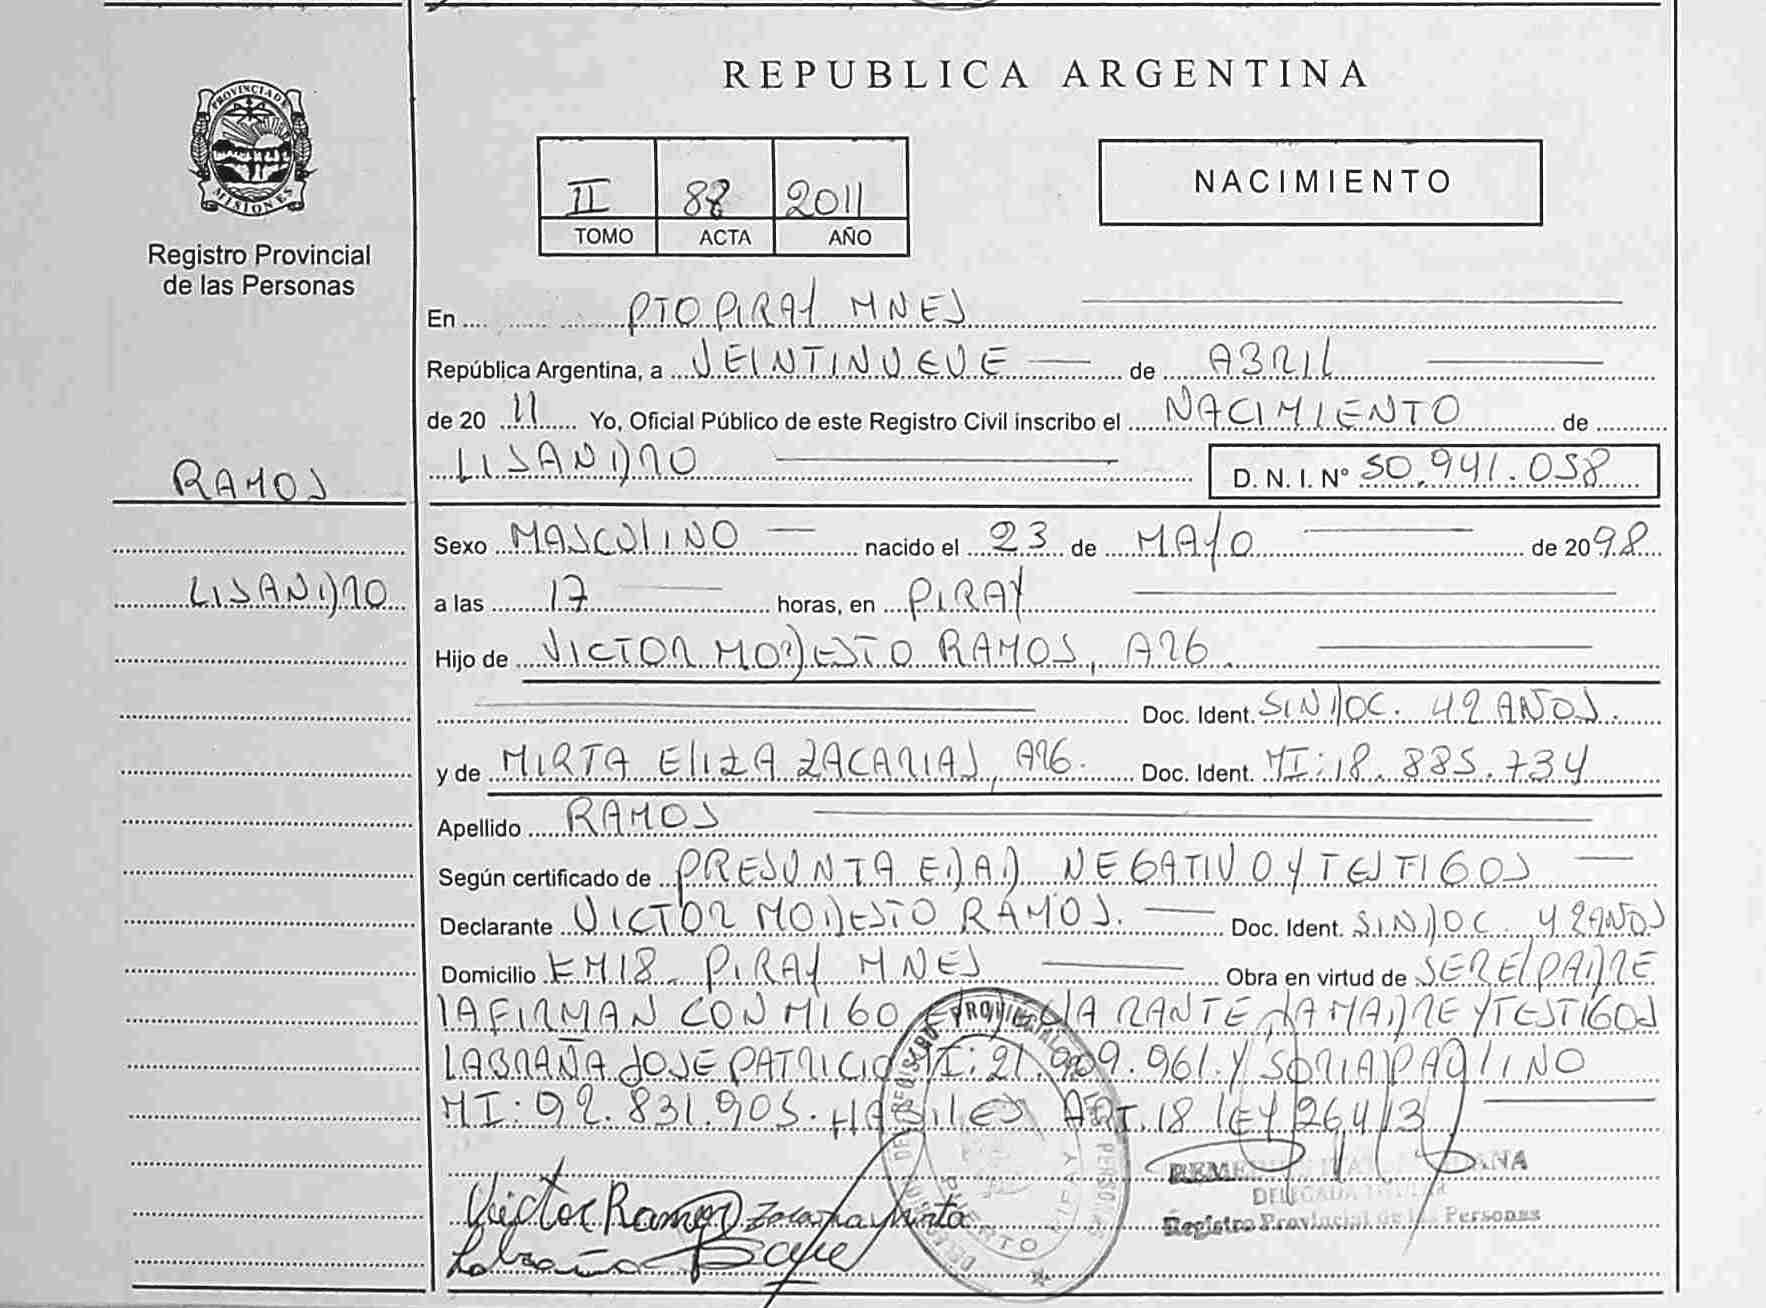 REPUBLICA ARGENTINA
PROVINCIA DE
MISIONES
Registro Provincial
de las Personas
II 88 2011
TOMO ACTA AÑO
NACIMIENTO
En PTO PIRAY MNES
República Argentina, a VEINTINUEVE de ABRIL
de 20 11 Yo, Oficial Público de este Registro Civil inscribo el NACIMIENTO de
LISANDRO D. N. I. N° 50.941.058
RAMOS
LISANDRO
Sexo MASCULINO nacido el 23 de MAYO de 2098
a las 17 horas, en PIRAY
Hijo de VICTOR MODESTO RAMOS, ARG.
Doc. Ident. SIN DOC. 42 AÑOS.
y de MIRTA ELIZA ZACARIAS, ARG. Doc. Ident. MI: 18.885.734
Apellido RAMOS
Según certificado de PRESUNTA EDAD NEGATIVO Y TESTIGOS
Declarante VICTOR MODESTO RAMOS. Doc. Ident. SIN DOC 42 AÑOS
Domicilio KM 18 PIRAY MNES Obra en virtud de SER EL PADRE
LA FIRMAN CONMIGO CLARANTE LA MADRE Y TESTIGOS
LABRAÑA JOSE PATRICIO MI: 21.909.961. Y SORIA PAULINO
MI: 92.831.905. HABILES ART. 18 LEY 26.413
Victor Ramos Zacarias Mirta
DELEGADA TITULAR
Registro Provincial de las Personas
Labraña